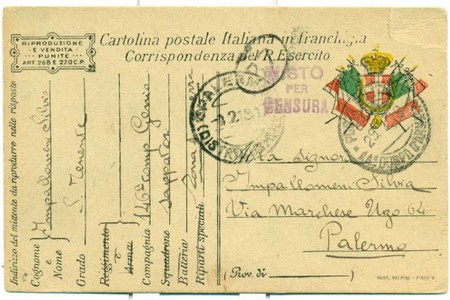 RIPRODUZIONE
E VENDITA
PUNITE
ART. 268 E 270 C.P.
Cartolina postale Italiana in franchigia
Corrispondenza del R. Esercito
PALERMO
VISTO
PER
CENSURA
Alla Signora
Impallomeni Silvia
Via Marchese Ugo 64
Palermo
Prov. di ( )
Indirizzo del mittente da riprodurre nelle risposte
Cognome e Nome Impallomeni Silvio
Grado S. Tenente
Reggimento o Arma
Compagnia 146ª Comp Genio
Squadrone Zappatori
Batteria
Riparti speciali Zona